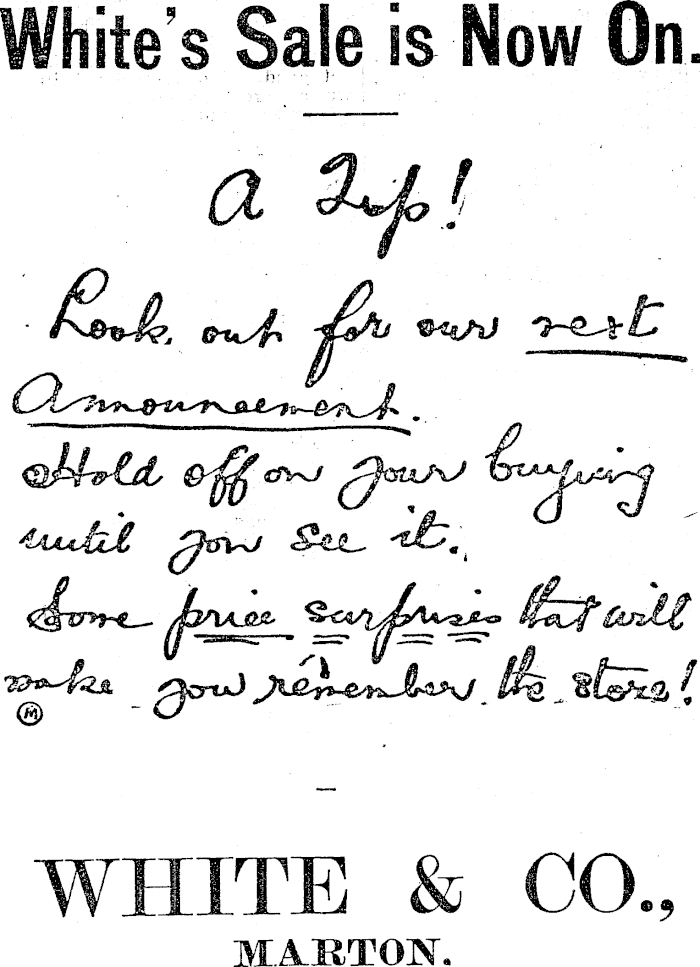 White's Sale is Now On.
A Tip!
Look out for our next
Announcement.
Hold off on your buying
until you see it.
Some price surprises that will
make you remember the store!
M
WHITE & CO.,
MARTON.